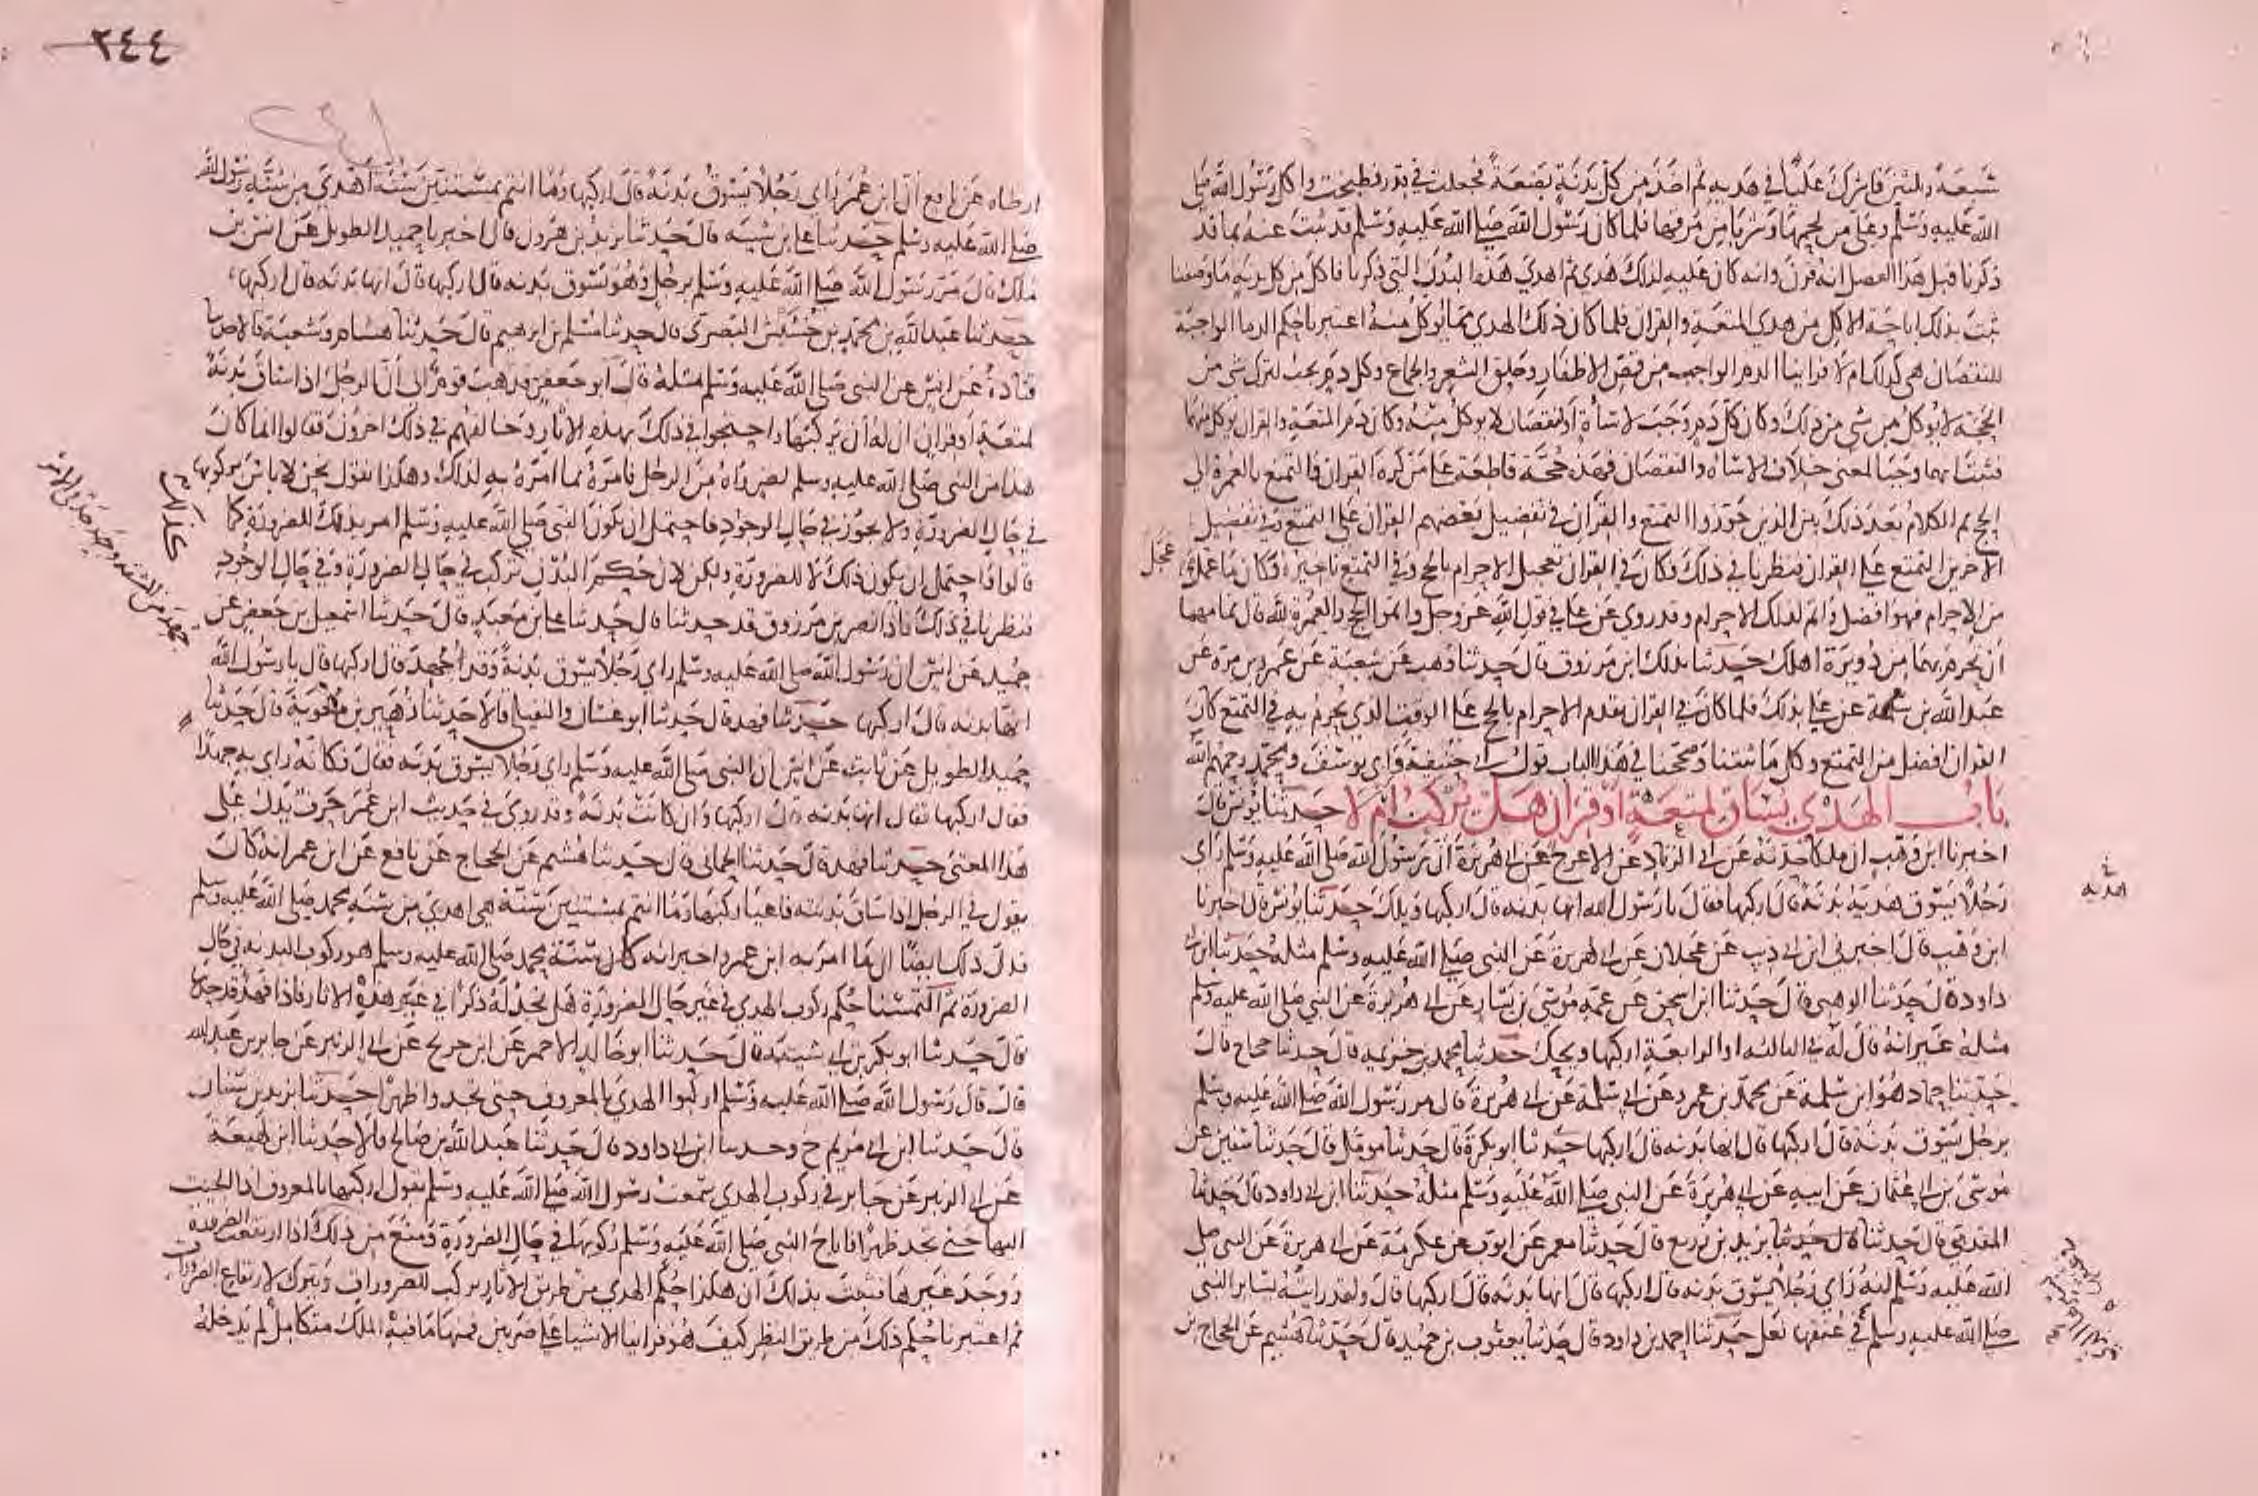 سبعة وثلثين فاشرك عليا في هديه ثم اخذ من كل بدنة بضعة فجعلت في قدر فطبخت واكل رسول الله صلى
الله عليه وسلم وعلي من لحمها وشربا من مرقها فلما كان رسول الله صلى الله عليه وسلم قد ثبت عنه بما قد
ذكرنا قبل هذا الفصل انه قرن وانه كان عليه لذلك هدي ثم اهدى هذه البدن التي ذكرنا فاكل من كل بدنة ما وصفنا
ثبت بذلك اباحة الاكل من هدي المتعة والقران فلما كان ذلك الهدي مما يوكل منه اعتبرنا حكم الدما الواجبة
للنقصان هي كذلك ام لا فراينا الدم الواجب من قص الاظفار وحلق الشعر والجماع وكل دم يجب لترك شي من
الحجة لا يوكل من شي من ذلك وكان كل دم وجب لاساة او نقصان لا يوكل منه وكان دم المتعة والقران يوكل منهما
فثبت انهما وجبا لمعنى خلاف الاساة والنقصان فهذه حجة قاطعة على من كره القران والتمتع بالعمرة الى
الحج ثم الكلام بعد ذلك بين الذين جوزوا التمتع والقران في تفضيل بعضهم القران على التمتع وفي تفضيل
الاخرين التمتع على القران فنظرنا في ذلك فكان في القران تعجيل الاحرام بالحج وفي التمتع تاخيره فكان ما عجل
من الاحرام فهو افضل واتم لذلك الاحرام وقد روي عن علي في قول الله عز وجل واتموا الحج والعمرة لله قال تمامهما
ان تحرم بهما من دويرة اهلك حدثنا بذلك ابن مرزوق قال حدثنا وهب عن شعبة عن عمرو بن مرة عن
عبد الله بن سلمة عن علي بذلك فلما كان في القران تقدم الاحرام بالحج على الوقت الذي يحرم به في التمتع كان
القران افضل من التمتع وكل ما ثبتنا وصححنا في هذا الباب قول ابي حنيفة وابي يوسف ومحمد رحمهم الله
باب الهدي يساق لمتعة او قران هل يركب ام لا حدثنا يونس قال
اخبرنا ابن وهب ان ملكا حدثه عن ابي الزناد عن الاعرج عن ابي هريرة ان رسول الله صلى الله عليه وسلم راى
رجلا يسوق هديه بدنة قال اركبها فقال يا رسول الله انها بدنة قال اركبها ويلك حدثنا يونس قال اخبرنا
ابن وهب قال اخبرني ابن ابي ذيب عن عجلان عن ابي هريرة عن النبي صلى الله عليه وسلم مثله حدثنا ابن ابي
داود قال حدثنا الوهبي قال حدثنا ابن اسحق عن عمه موسى بن يسار عن ابي هريرة عن النبي صلى الله عليه وسلم
مثله غير انه قال له في الثالثة او الرابعة اركبها ويحك حدثنا محمد بن خزيمة قال حدثنا حجاج قال
حدثنا حماد هو ابن سلمة عن محمد بن عمرو عن ابي سلمة عن ابي هريرة قال مر رسول الله صلى الله عليه وسلم
برجل يسوق بدنة قال اركبها قال انها بدنة قال اركبها حدثنا ابو بكرة قال حدثنا مومل قال حدثنا سفين عن
موسى بن ابي عثمان عن ابيه عن ابي هريرة عن النبي صلى الله عليه وسلم مثله حدثنا ابن ابي داود قال حدثنا
المقدمي قال حدثنا يزيد بن زريع قال حدثنا معمر عن ايوب عن عكرمة عن ابي هريرة عن النبي صلى
الله عليه وسلم انه راى رجلا يسوق بدنة قال اركبها قال انها بدنة قال اركبها قال ولقد رايته يساير النبي
صلى الله عليه وسلم في عنقها نعل حدثنا احمد بن داود قال حدثنا يعقوب بن حميد قال حدثنا هشيم عن الحجاج بن
عجل
٢٤٤
ارطاه عن نافع ان ابن عمر راى رجلا يسوق بدنة قال اركبها وما انتم بمستنين سنة اهدى من سنة رسول الله
صلى الله عليه وسلم حدثنا علي بن شيبه قال حدثنا يزيد بن هرون قال اخبرنا حميد الطويل عن انس بن
ملك قال مر رسول الله صلى الله عليه وسلم برجل وهو يسوق بدنه قال اركبها قال انها بدنه قال اركبها
حدثنا عبد الله بن محمد بن خشيش البصري قال حدثنا مسلم بن ابرهيم قال حدثنا هشام وشعبة قالا حدثنا
قتادة عن انس عن النبي صلى الله عليه وسلم مثله قال ابو جعفر فذهب قوم الى ان الرجل اذا ساق بدنة
لمتعة او قران ان له ان يركبها واحتجوا في ذلك بهذه الاثار وخالفهم في ذلك اخرون فقالوا انما كان
هذا من النبي صلى الله عليه وسلم لضر راه من الرجل فامره بما امره به لذلك وهكذا نقول نحن لا باس بركوبها
في حال الضرورة ولا يجوز في حال الوجود فاحتمل ان يكون النبي صلى الله عليه وسلم امر بذلك للضرورة كما
قالوا واحتمل ان يكون ذلك لا للضرورة ولكن لان حكم البدن تركب في حال الضرورة وفي حال الوجود
فنظرنا في ذلك فاذا نصر بن مرزوق قد حدثنا قال حدثنا علي بن معبد قال حدثنا اسمعيل بن جعفر عن
حميد عن انس ان رسول الله صلى الله عليه وسلم راى رجلا يسوق بدنة وقد جهد قال اركبها قال يا رسول الله
انها بدنه قال اركبها حدثنا فهد قال حدثنا ابو غسان والنفيلي قالا حدثنا زهير بن معوية قال حدثنا
حميد الطويل عن ثابت عن انس ان النبي صلى الله عليه وسلم راى رجلا يسوق بدنه فقال فكانه راى به جهدا
فقال اركبها فقال انها بدنه قال اركبها وان كانت بدنة وقد روي في حديث ابن عمر حرف يدل على
هذا المعنى حدثنا فهد قال حدثنا الحماني قال حدثنا هشيم عن الحجاج عن نافع عن ابن عمر انه كان
يقول في الرجل اذا ساق بدنته فاعيا ركبها وما انتم بمستنين سنة هي اهدى من سنة محمد صلى الله عليه وسلم
فدل ذلك ايضا ان ما امر به ابن عمر واخبر انه كان سنة محمد صلى الله عليه وسلم هو ركوب البدنه في حال
الضرورة ثم التمسنا حكم ركوب الهدي في غير حال الضرورة هل نجد له ذكرا في غير هذه الاثار فاذا فهد قد حدثنا
قال حدثنا ابو بكر بن ابي شيبة قال حدثنا ابو خالد الاحمر عن ابن جريج عن ابي الزبير عن جابر بن عبد الله
قال قال رسول الله صلى الله عليه وسلم اركبوا الهدي بالمعروف حتى تجدوا ظهرا حدثنا يزيد بن سنان
قال حدثنا ابن ابي مريم ح وحدثنا ابن ابي داود قال حدثنا عبد الله بن صالح قالا حدثنا ابن لهيعة
عن ابي الزبير عن جابر في ركوب الهدي سمعت رسول الله صلى الله عليه وسلم يقول اركبها بالمعروف اذا الجيت
اليها حتى تجد ظهرا فاباح النبي صلى الله عليه وسلم ركوبها في حال الضرورة ومنع من ذلك اذا ارتفعت الضرورة
ووجد غيرها فثبت بذلك ان هكذا حكم الهدي من طريق الاثار يركب للضرورات ويترك لارتفاع الضرورات
ثم اعتبرنا حكم ذلك من طريق النظر كيف هو فراينا الاشيا على ضربين فمنها ما فيه الملك متكامل لم يدخله